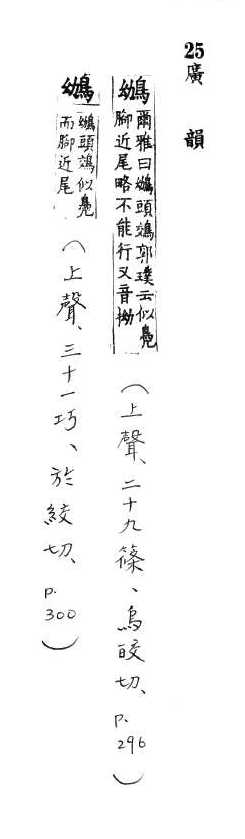 25廣韻
鴢 爾雅曰鴢頭鵁郭璞云似鳧
腳近尾略不能行又音拗
(上聲、二十九篠、烏皎切、p.296)
鴢 鴢頭鵁似鳧
而腳近尾
(上聲、三十一巧、於絞切、p.300)